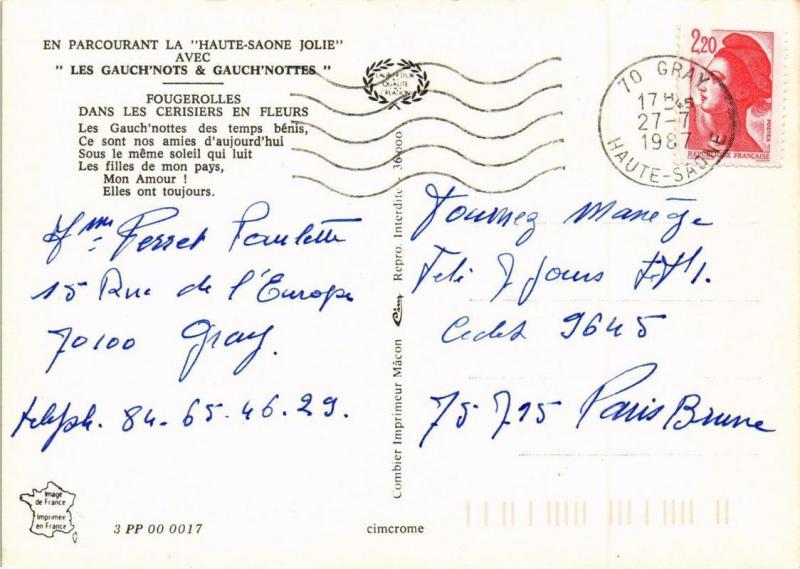 EN PARCOURANT LA "HAUTE-SAONE JOLIE"
AVEC
" LES GAUCH'NOTS & GAUCH'NOTTES "
FOUGEROLLES
DANS LES CERISIERS EN FLEURS
Les Gauch'nottes des temps bénis,
Ce sont nos amies d'aujourd'hui
Sous le même soleil qui luit
Les filles de mon pays,
Mon Amour !
Elles ont toujours.
Mme Perret Paulette
15 Rue de l'Europe
70100 Gray.
téléph. 84.65.46.29.
Image
de France
Imprimée
en France
3 PP 00 0017
cimcrome
Combier Imprimeur Mâcon Cim Repro. Interdite 36 000
QUALITÉ
CRÉATION
2,20
POSTES
REPUBLIQUE FRANÇAISE
70 GRAY
17H45
27-7
1987
HAUTE-SAONE
Tournez Manège
Télé 7 Jours
Cedex 9645
75 795 Paris Brune